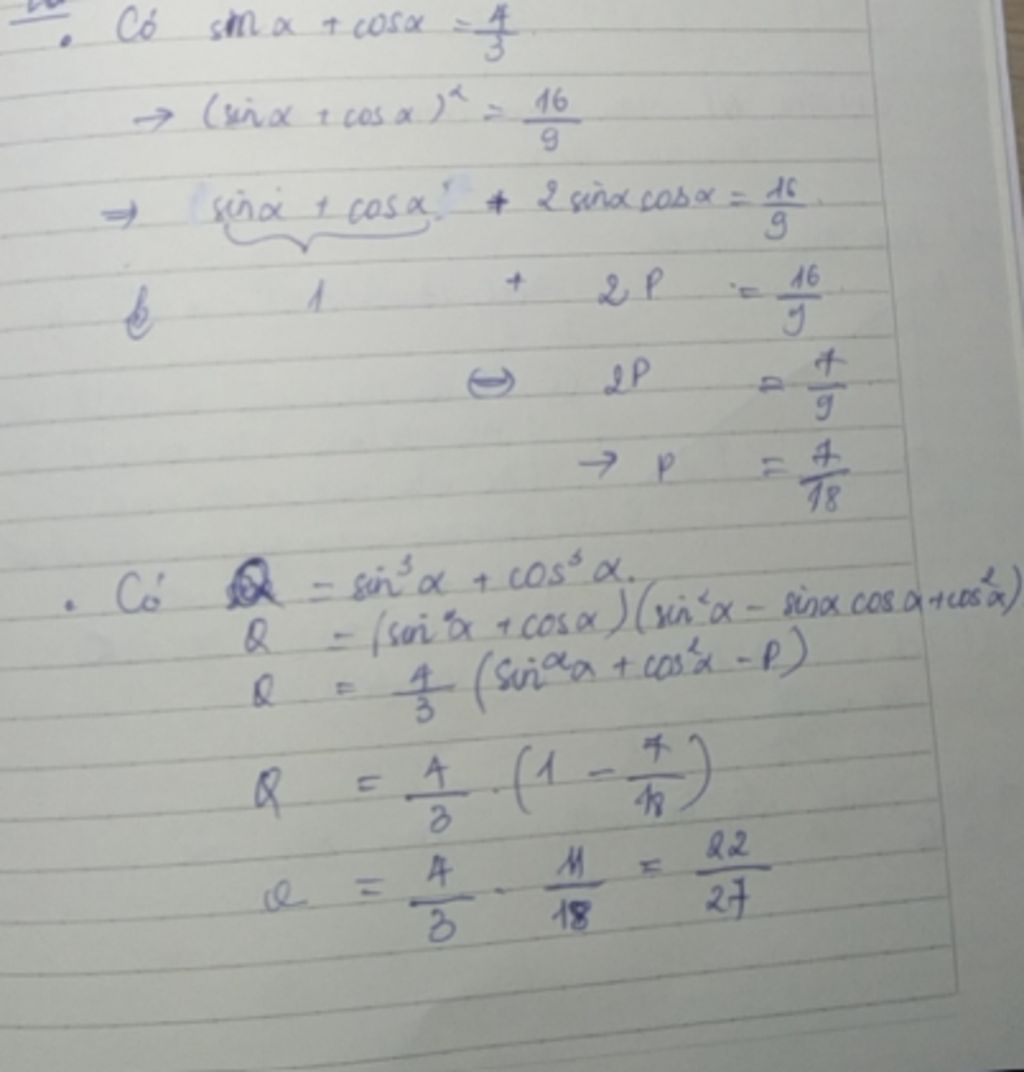 . Có sin α + cosα = 4/3
→ (sinα + cosα)² = 16/9
⇒ sin²α + cosα² + 2 sinα cosα = 16/9
1 + 2P = 16/9
⇔ 2P = 7/9
→ P = 7/18
. Có Q = sin³α + cos³α.
Q = (sinα + cosα)(sin²α - sinα cosα + cos²α)
Q = 4/3 (sin²α + cos²α - P)
Q = 4/3 . (1 - 7/18)
Q = 4/3 . 11/18 = 22/27